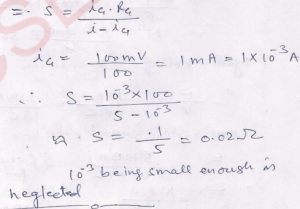 =. S = iG. RG / i-iG
iG = 100mV / 100 = 1 mA = 1X10⁻³A
∴ S = 10⁻³×100 / 5-10⁻³
S = .1 / 5 = 0.02Ω
10⁻³ being small enough is
neglected